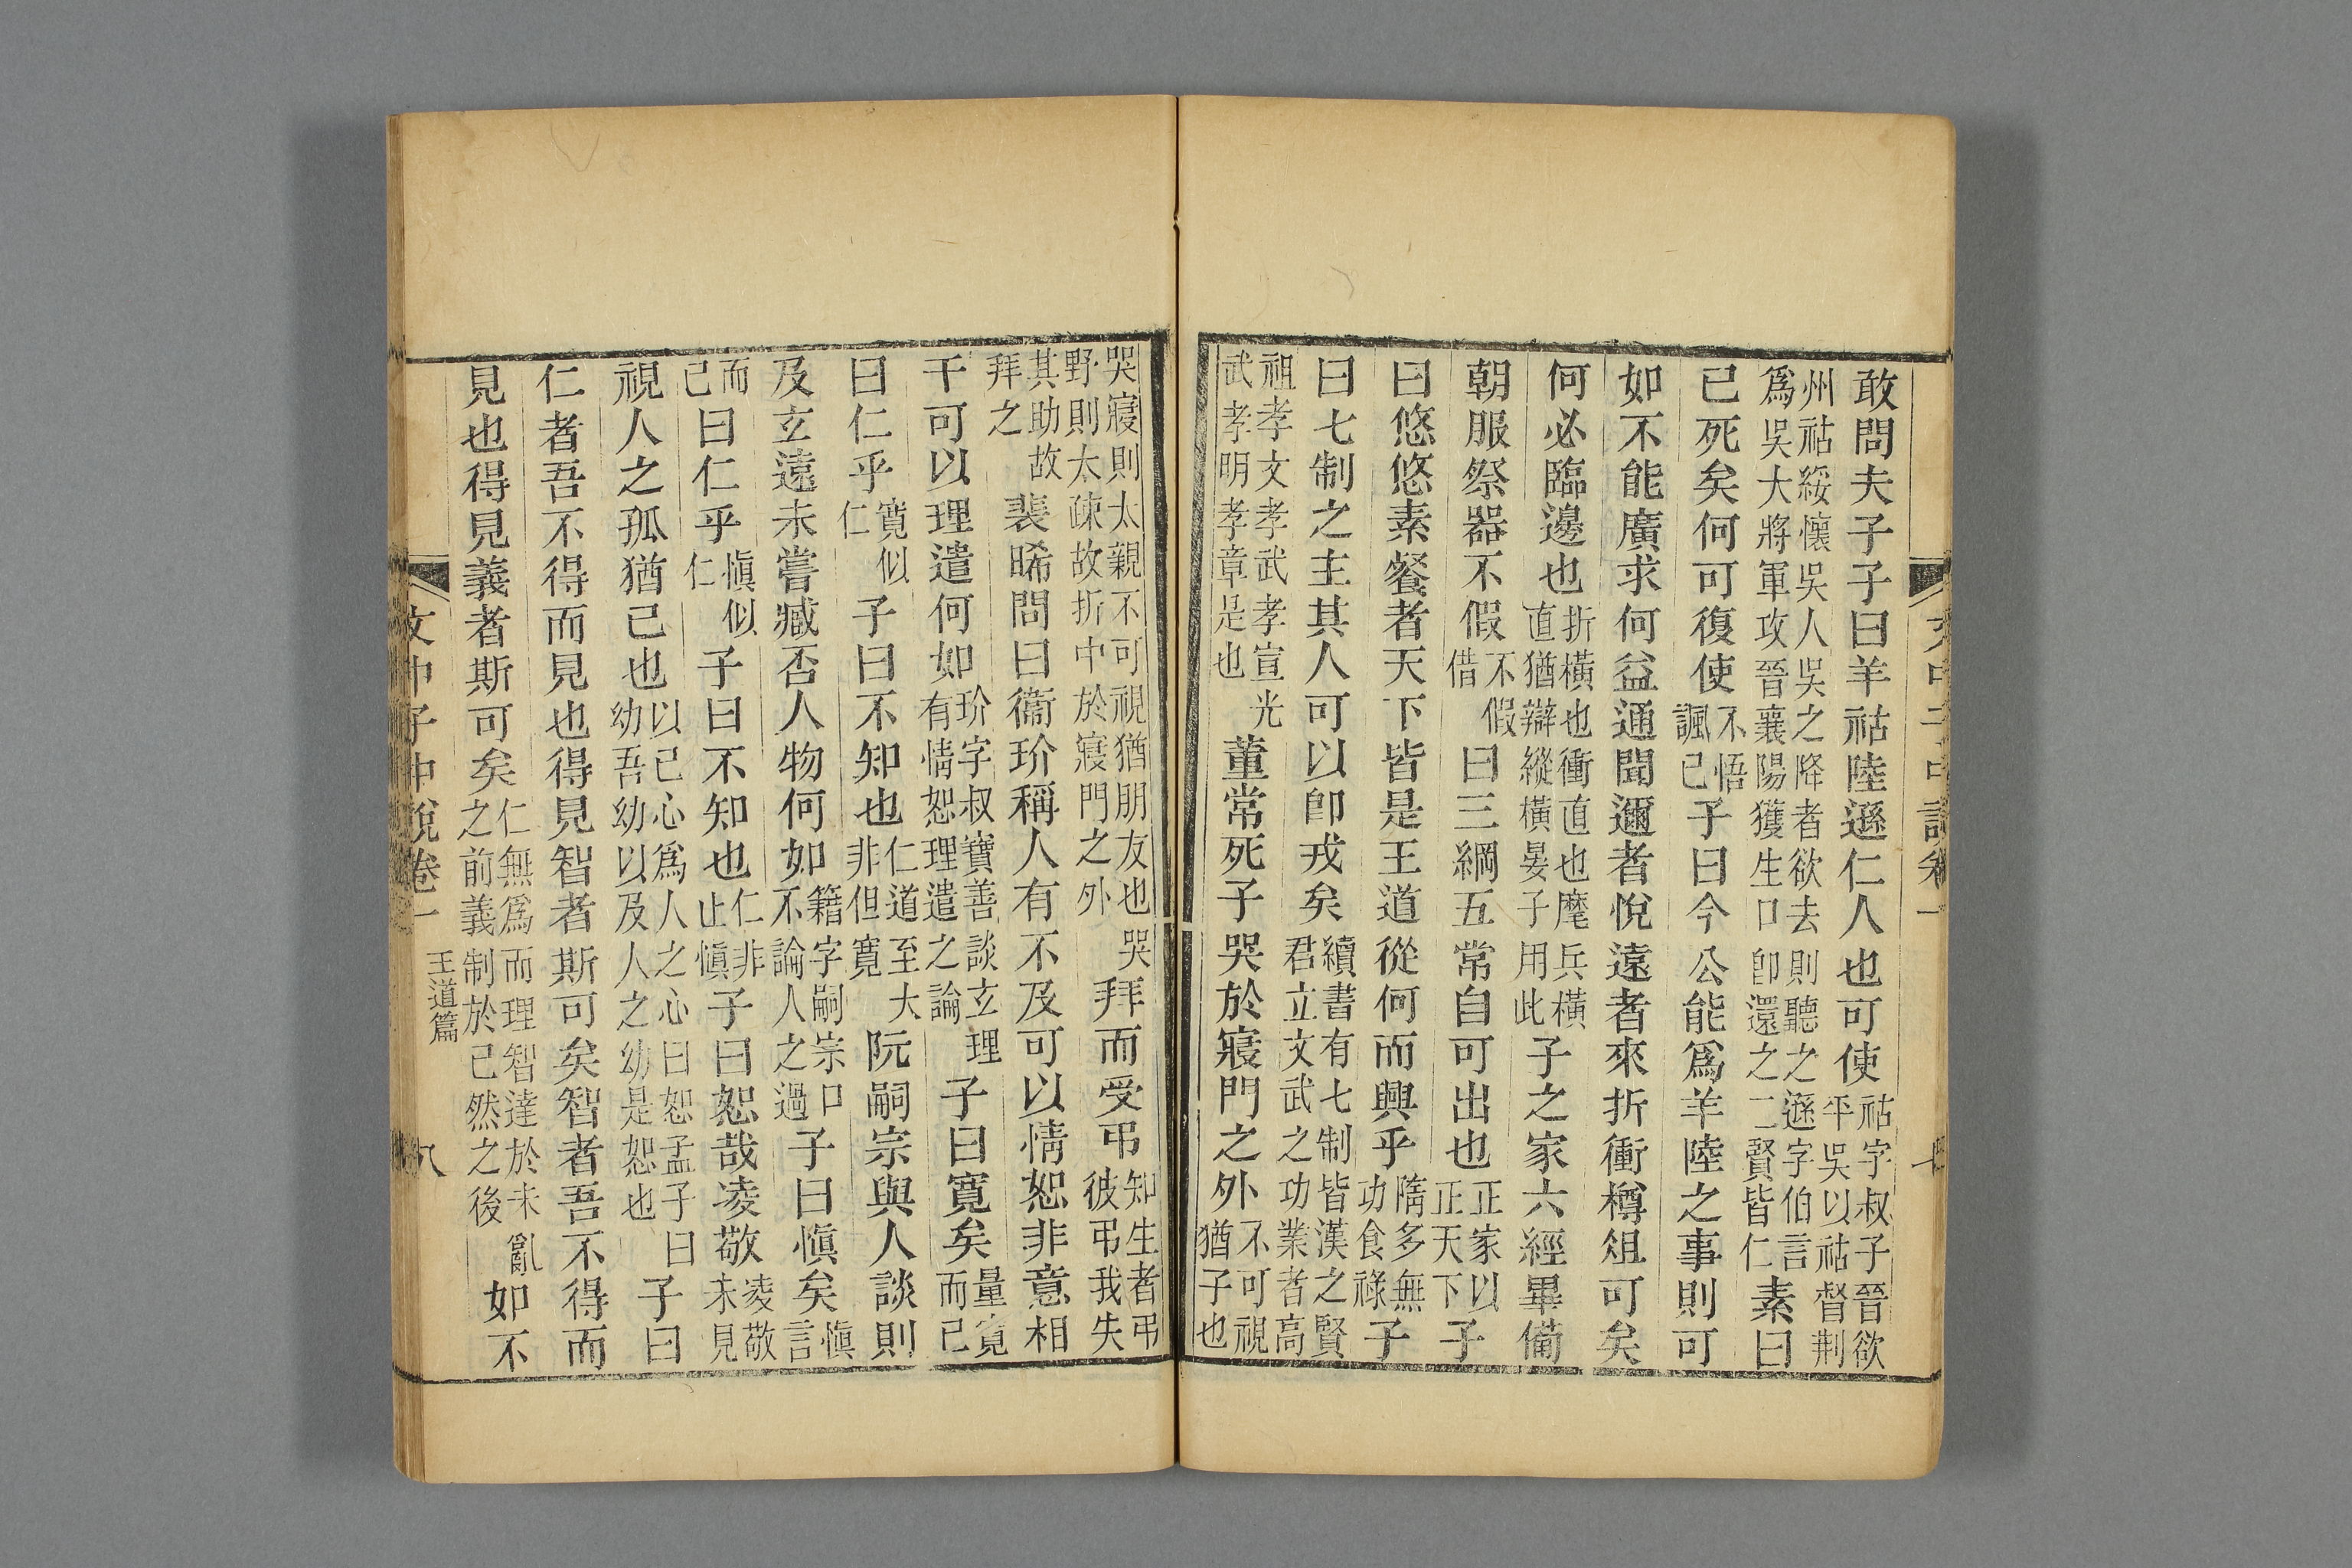 敢問夫子子曰羊祜陸遜仁人也可使祜字叔子晉欲平吳以祜督荆
州祜綏懷吳人吳之降者欲去則聽之遜字伯言爲吳大將軍攻晉襄陽獲生口卽還之二賢皆仁素曰
已死矣何可復使不悟諷已子曰今公能爲羊陸之事則可
如不能廣求何益通聞邇者悅遠者來折衝樽俎可矣
何必臨邊也折橫也衝直也麾兵橫直猶辯縱橫晏子用此子之家六經畢備
朝服祭器不假不假借曰三綱五常自可出也正家以正天下子
曰悠悠素餐者天下皆是王道從何而興乎隋多無功食祿子
曰七制之主其人可以卽戎矣續書有七制皆漢之賢君立文武之功業者高
祖孝文孝武孝宣光武孝明孝章是也董常死子哭於寢門之外不可視猶子也
哭寢則太親不可視猶朋友也哭野則太疎故折中於寢門之外拜而受弔知生者弔彼弔我失
其助故拜之裴晞問曰衞玠稱人有不及可以情恕非意相
干可以理遣何如玠字叔寶善談玄理有情恕理遣之論子曰寬矣量寬而已
曰仁乎寬似仁子曰不知也仁道至大非但寬阮嗣宗與人談則
及玄遠未嘗臧否人物何如籍字嗣宗口不論人之過子曰愼矣愼言
而已曰仁乎愼似仁子曰不知也仁非止愼子曰恕哉凌敬凌敬未見
視人之孤猶己也以己心爲人之心曰恕孟子曰幼吾幼以及人之幼是恕也子曰
仁者吾不得而見也得見智者斯可矣智者吾不得而
見也得見義者斯可矣仁無爲而理智達於未亂之前義制於已然之後如不
文中子中說卷一
王道篇
八